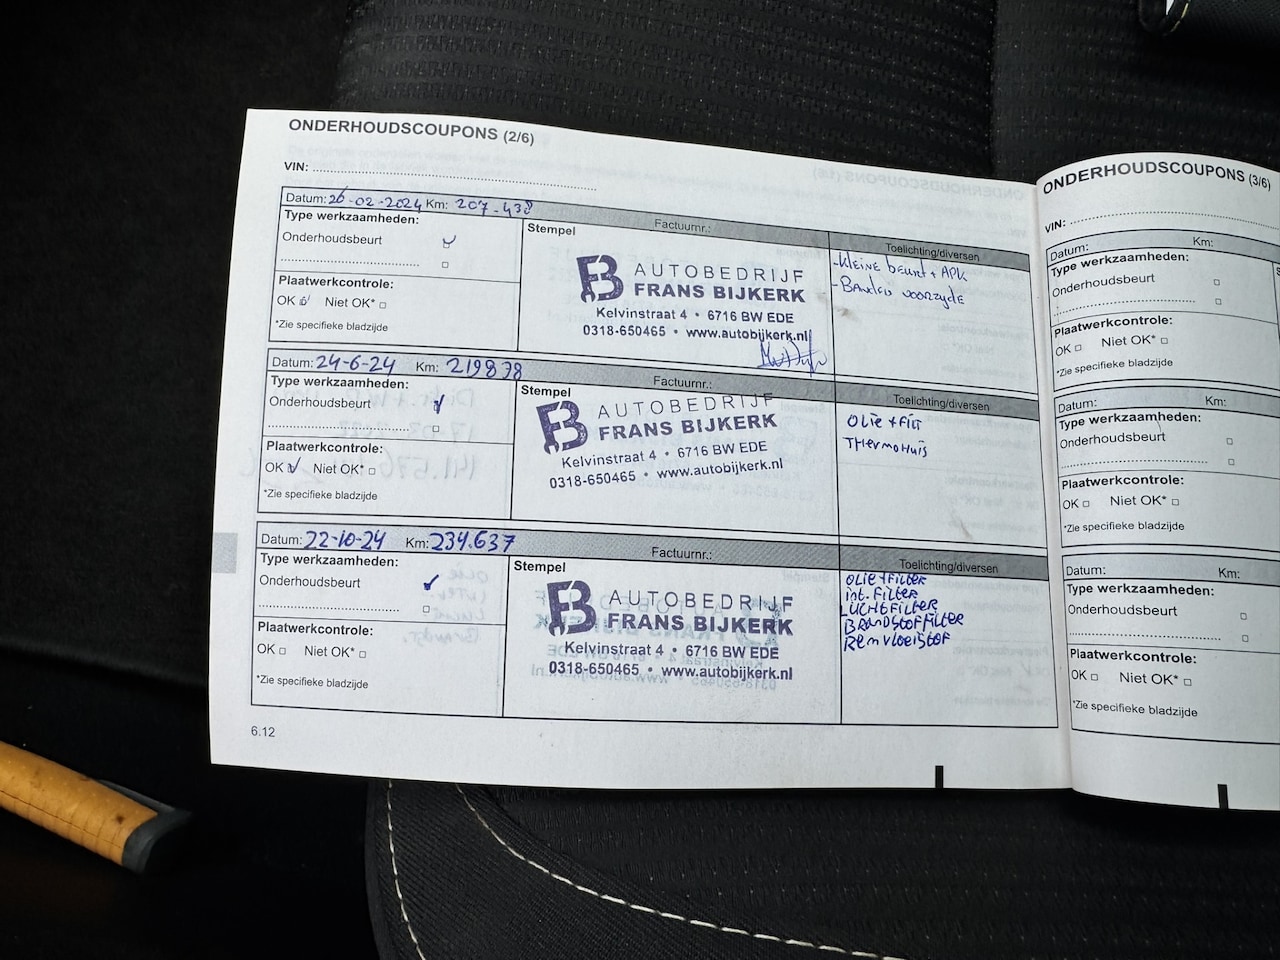 ONDERHOUDSCOUPONS (2/6)
VIN:
Datum: 26-02-2024 Km: 207-438
Factuurnr.:
Type werkzaamheden:
Onderhoudsbeurt
Plaatwerkcontrole:
OK Niet OK*
*Zie specifieke bladzijde
Stempel
AUTOBEDRIJF
FRANS BIJKERK
Kelvinstraat 4 • 6716 BW EDE
0318-650465 • www.autobijkerk.nl
Toelichting/diversen
-Kleine beurt + APK
-Banden voorzyde
Datum: 24-6-24 Km: 219878
Factuurnr.:
Type werkzaamheden:
Onderhoudsbeurt
Plaatwerkcontrole:
OK Niet OK*
*Zie specifieke bladzijde
Stempel
AUTOBEDRIJF
FRANS BIJKERK
Kelvinstraat 4 • 6716 BW EDE
0318-650465 • www.autobijkerk.nl
Toelichting/diversen
OLIE + FILT
THERMOHUIS
Datum: 22-10-24 Km: 234.637
Factuurnr.:
Type werkzaamheden:
Onderhoudsbeurt
Plaatwerkcontrole:
OK Niet OK*
*Zie specifieke bladzijde
Stempel
AUTOBEDRIJF
FRANS BIJKERK
Kelvinstraat 4 • 6716 BW EDE
0318-650465 • www.autobijkerk.nl
Toelichting/diversen
OLIE + FILTER
int. FILTER
LUCHTFILTER
BRANDSTOFFILTER
REMVLOEISTOF
6.12
ONDERHOUDSCOUPONS (3/6)
VIN:
Datum: Km:
Type werkzaamheden:
Onderhoudsbeurt
Plaatwerkcontrole:
OK Niet OK*
*Zie specifieke bladzijde
Datum: Km:
Type werkzaamheden:
Onderhoudsbeurt
Plaatwerkcontrole:
OK Niet OK*
*Zie specifieke bladzijde
Datum: Km:
Type werkzaamheden:
Onderhoudsbeurt
Plaatwerkcontrole:
OK Niet OK*
*Zie specifieke bladzijde